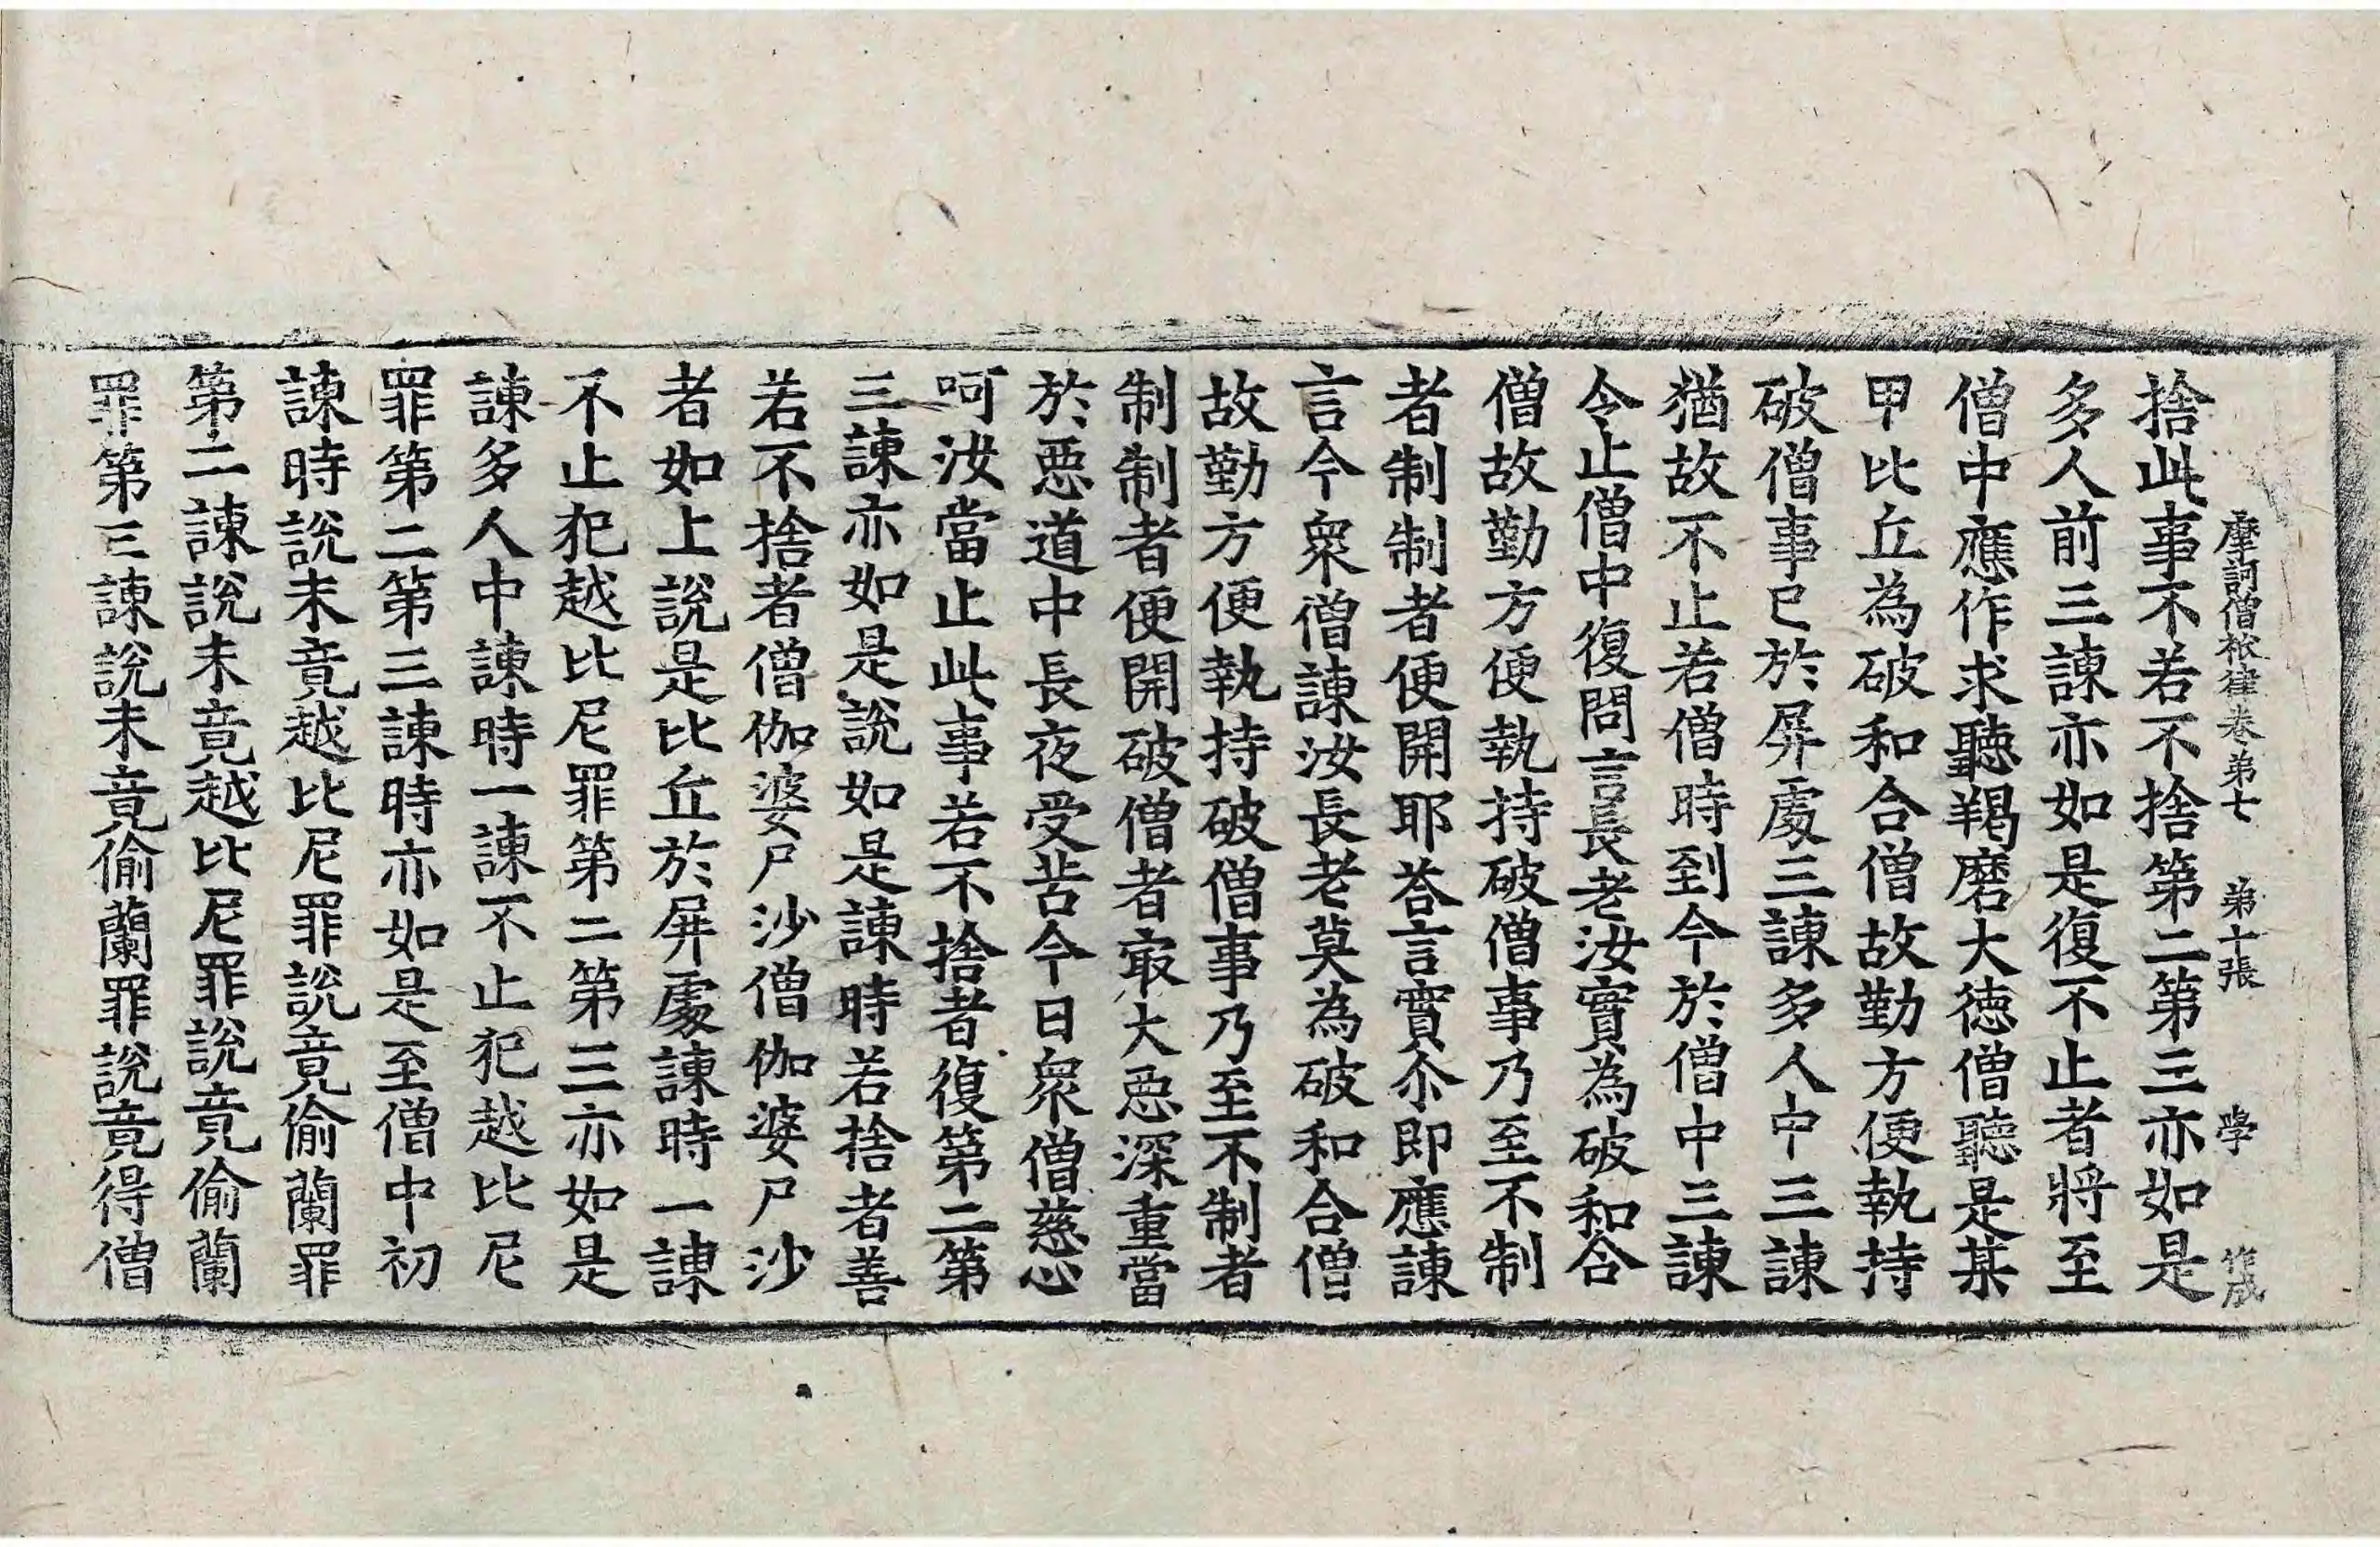 摩訶僧祇律卷第七 第十張 學 作成
捨此事不若不捨第二第三亦如是
多人前三諫亦如是復不止者將至
僧中應作求聽羯磨大德僧聽是某
甲比丘為破和合僧故勤方便執持
破僧事已於屏處三諫多人中三諫
猶故不止若僧時到今於僧中三諫
令止僧中復問言長老汝實為破和合
僧故勤方便執持破僧事乃至不制
者制制者便開耶荅言實尒即應諫
言今衆僧諫汝長老莫為破和合僧
故勤方便執持破僧事乃至不制者
制制者便開破僧者㝡大惡深重當
於惡道中長夜受苦今日衆僧慈心
呵汝當止此事若不捨者復第二第
三諫亦如是說如是諫時若捨者善
若不捨者僧伽婆尸沙僧伽婆尸沙
者如上說是比丘於屏處諫時一諫
不止犯越比尼罪第二第三亦如是
諫多人中諫時一諫不止犯越比尼
罪第二第三諫時亦如是至僧中初
諫時說未竟越比尼罪說竟偷蘭罪
第二諫說未竟越比尼罪說竟偷蘭
罪第三諫說未竟偷蘭罪說竟得僧